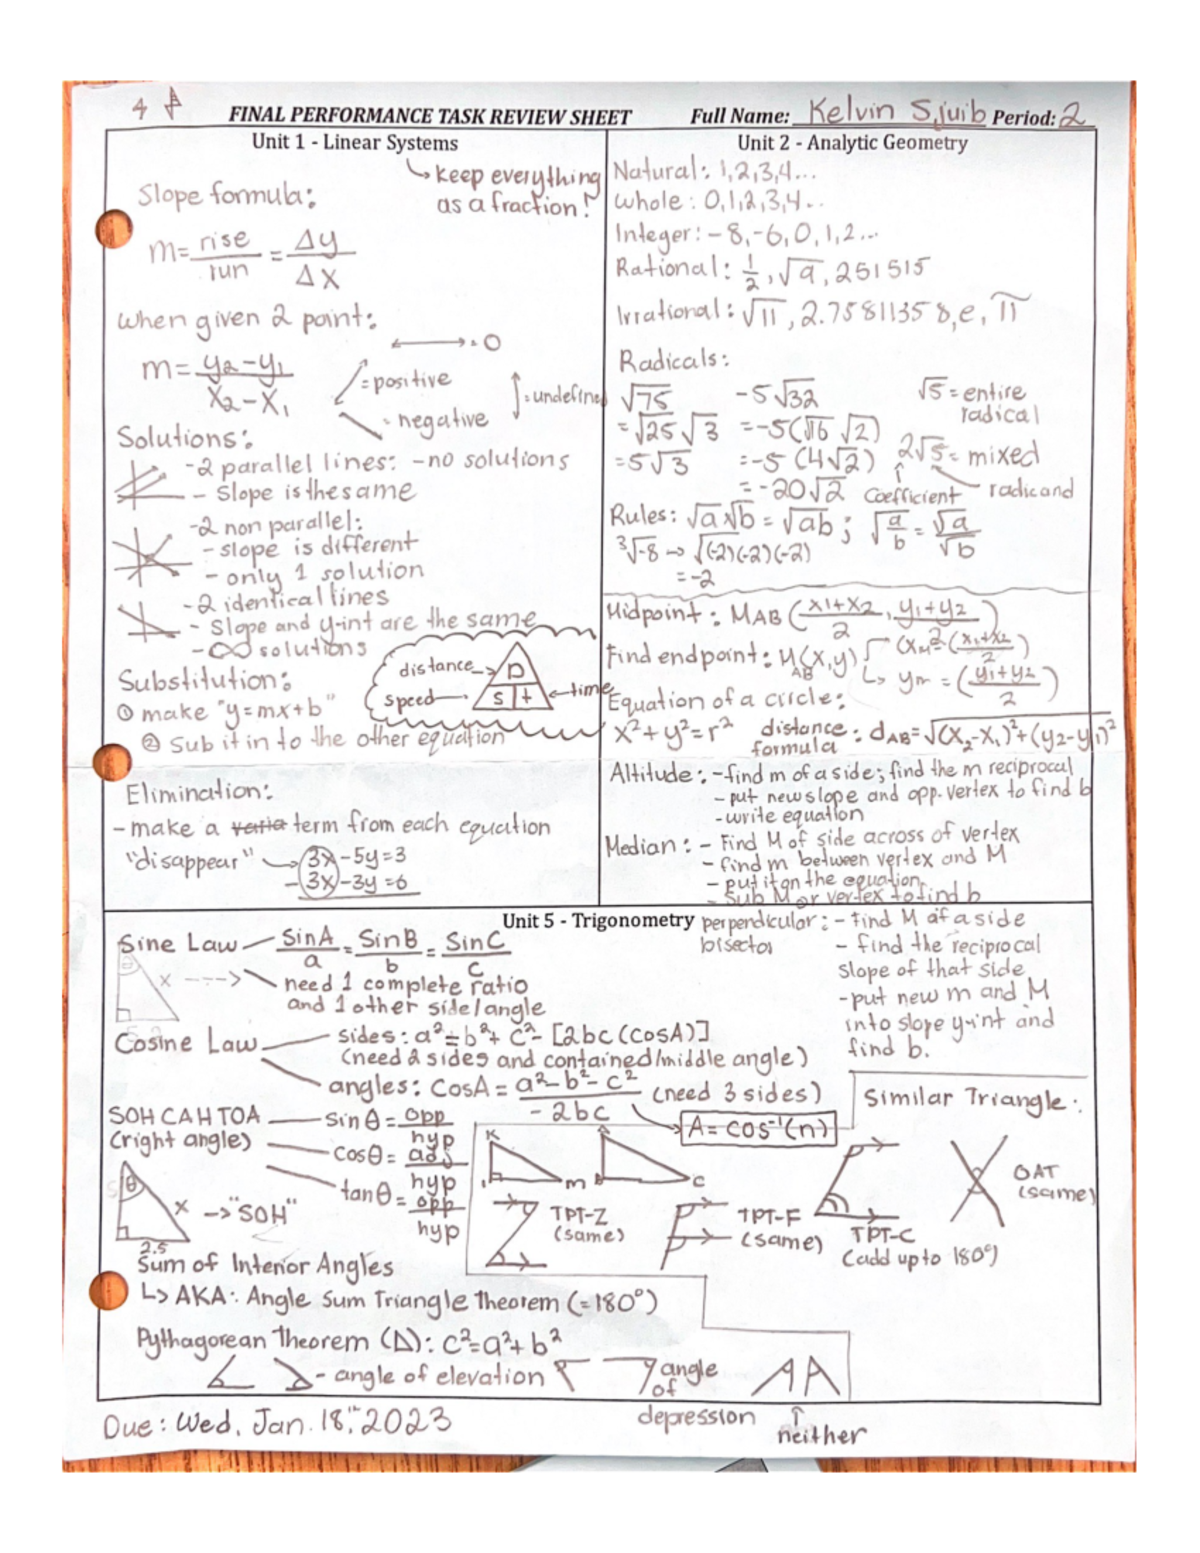 4
FINAL PERFORMANCE TASK REVIEW SHEET Full Name: Kelvin Sjuib Period: 2
Unit 1 - Linear Systems
↳ keep everything
as a fraction!
Slope formula:
m= rise/run = Δy/Δx
when given 2 point:
m= y₂-y₁/x₂-x₁
= 0
= positive
= undefined
= negative
Solutions:
-2 parallel lines: -no solutions
- Slope is the same
-2 non parallel:
- slope is different
- only 1 solution
-2 identical lines
- Slope and y-int are the same
- ∞ solutions
distance
D
speed
S t
time
Substitution:
① make "y=mx+b"
② Sub it in to the other equation
Elimination:
- make a varia term from each equation
"disappear"
3x-5y=3
- 3x-3y=6
Unit 2 - Analytic Geometry
Natural: 1,2,3,4...
whole: 0,1,2,3,4..
Integer: -8,-6,0,1,2...
Rational: 1/2, √9, 251515
Irrational: √11, 2.75811358,e, π
Radicals:
√75
=√25 √3
=5√3
-5√32
=-5(√16 √2)
=-5 (4√2)
=-20√2
√5 = entire
radical
2√5 = mixed
Coefficient radicand
Rules: √a√b = √ab ; √a/b = √a/√b
³√-8 → √(-2)(-2)(-2)
=-2
Midpoint: M_AB (x1+x2/2, y1+y2/2)
Find endpoint: M_AB(x,y) x_M=(x₁+x₂/2)
↳ y_M = (y₁+y₂/2)
Equation of a circle:
x²+y²=r² distance formula: d_AB=√(x₂-x₁)²+(y₂-y₁)²
Altitude: -find m of a side; find the m reciprocal
- put new slope and opp. vertex to find b
-write equation
Median: - Find M of side across of vertex
- find m between vertex and M
- put it on the equation
- Sub M or vertex to find b
Unit 5 - Trigonometry
perpendicular bisector: - find M of a side
- find the reciprocal
slope of that side
-put new m and M
into slope y-int and
find b.
Sine Law SinA/a = SinB/b = SinC/c
θ
x
need 1 complete ratio
and 1 other side/angle
Cosine Law sides: a²=b²+c²- [2bc(cosA)]
(need 2 sides and contained/middle angle)
angles: CosA= a²-b²-c²/-2bc (need 3 sides)
A= cos⁻¹(n)
SOH CAH TOA
(right angles)
sinθ= opp/hyp
cosθ= adj/hyp
tanθ= opp/hyp
θ
x → "SOH"
2.5
Similar Triangle:
K
M
B
C
TPT-Z
(same)
TPT-F
(same)
TPT-C
(add up to 180°)
OAT
(same)
Sum of Interior Angles
↳ AKA: Angle Sum Triangle Theorem (=180°)
Pythagorean Theorem (Δ): c²=a²+b²
- angle of elevation
angle
of
depression
neither
Due: Wed, Jan. 18th, 2023